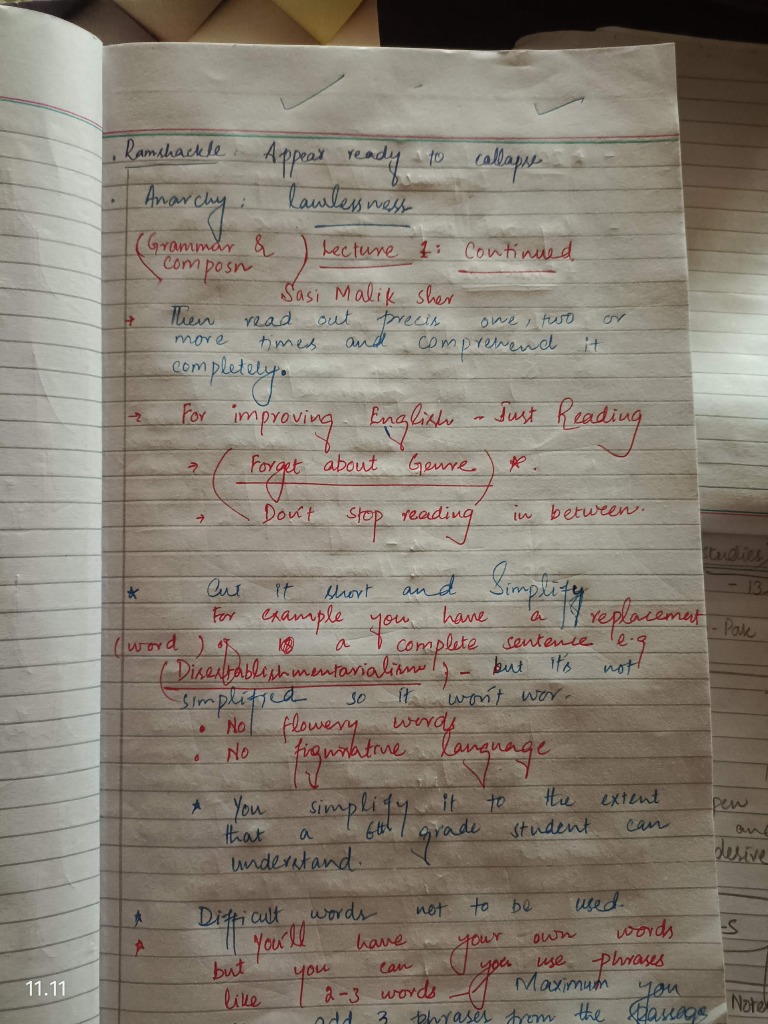 . Ramshackle: Appear ready to collapse
. Anarchy: lawlessness
(Grammar & composn) Lecture 1: Continued
Sasi Malik sher
→ Then read out precis one, two or
more times and comprehend it
completely.
→ For improving English - Just Reading
→ (Forget about Genre) *.
→ Don't stop reading in between.
* Cut it short and Simplify
For example you have a replacement
(word) of a complete sentence e.g
(Disestablishmentarialism) - but it's not
simplified so it won't wor.
• No flowery words
• No figurative language
* You simplify it to the extent
that a 6th grade student can
understand.
* Difficult words not to be used.
* You'll have your own words
but you can you use phrases
like 2-3 words - Maximum you
add 3 phrases from the passage
studies
- 13
- Pak
pen
and
desire
-S
Note
11.11